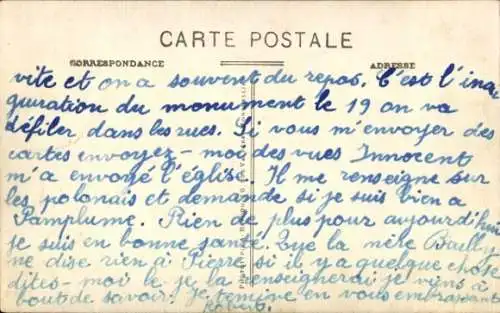 CARTE POSTALE
CORRESPONDANCE
ADRESSE
vite et on a souvent du repos. C'est l'inau
guration du monument le 19 on va
défiler dans les rues. Si vous m'envoyer des
cartes envoyez-moi des vues Innocent
m'a envoyé l'église. Il me renseigne sur
les polonais et demande si je suis bien a
Pamplume. Rien de plus pour aujourd'hui
je suis en bonne santé. Que la mère
ne dise rien à Pierre, si il y a quelque chose
dites-moi le je la renseignerai je viens à
bout de savoir. Je termine en vous embrassant
Robert.